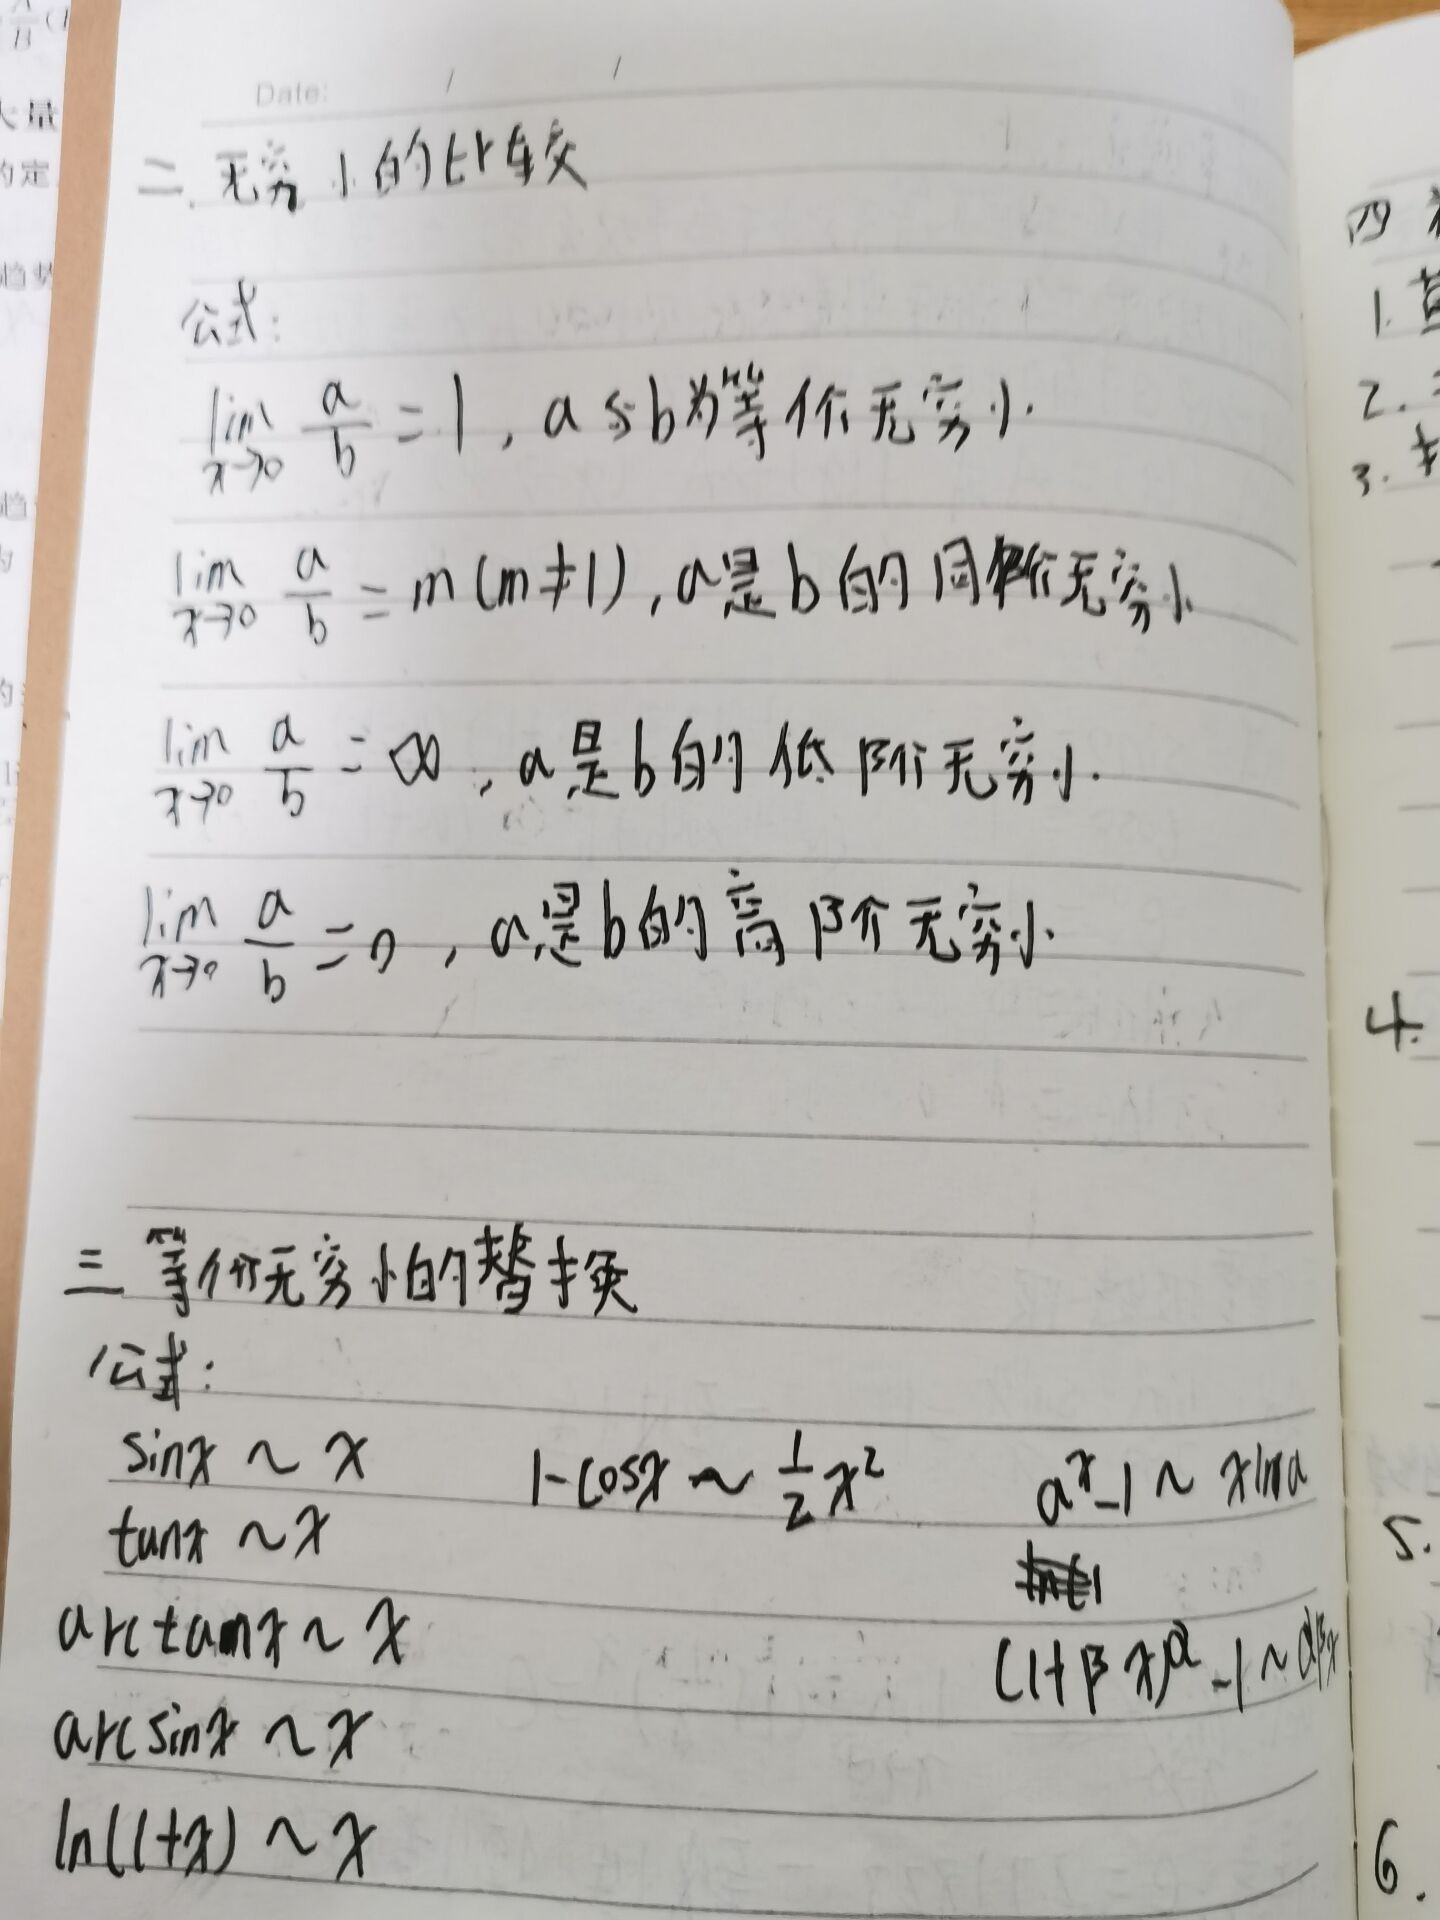 Date: / /
二. 无穷小的比较
公式:
lim x→0 a/b = 1, a与b为等价无穷小.
lim x→0 a/b = m (m≠1), a是b的同阶无穷小
lim x→0 a/b = ∞, a是b的低阶无穷小.
lim x→0 a/b = 0, a是b的高阶无穷小.
三 等价无穷小的替换
公式:
sinx ~ x 1-cosx ~ 1/2 x² aˣ-1 ~ xlna
tanx ~ x
arctanx ~ x (1+βx)ᵅ-1 ~ αβx
arcsinx ~ x
ln(1+x) ~ x
四
1.
2.
3.
4.
5.
6.
大量
的定
趋势